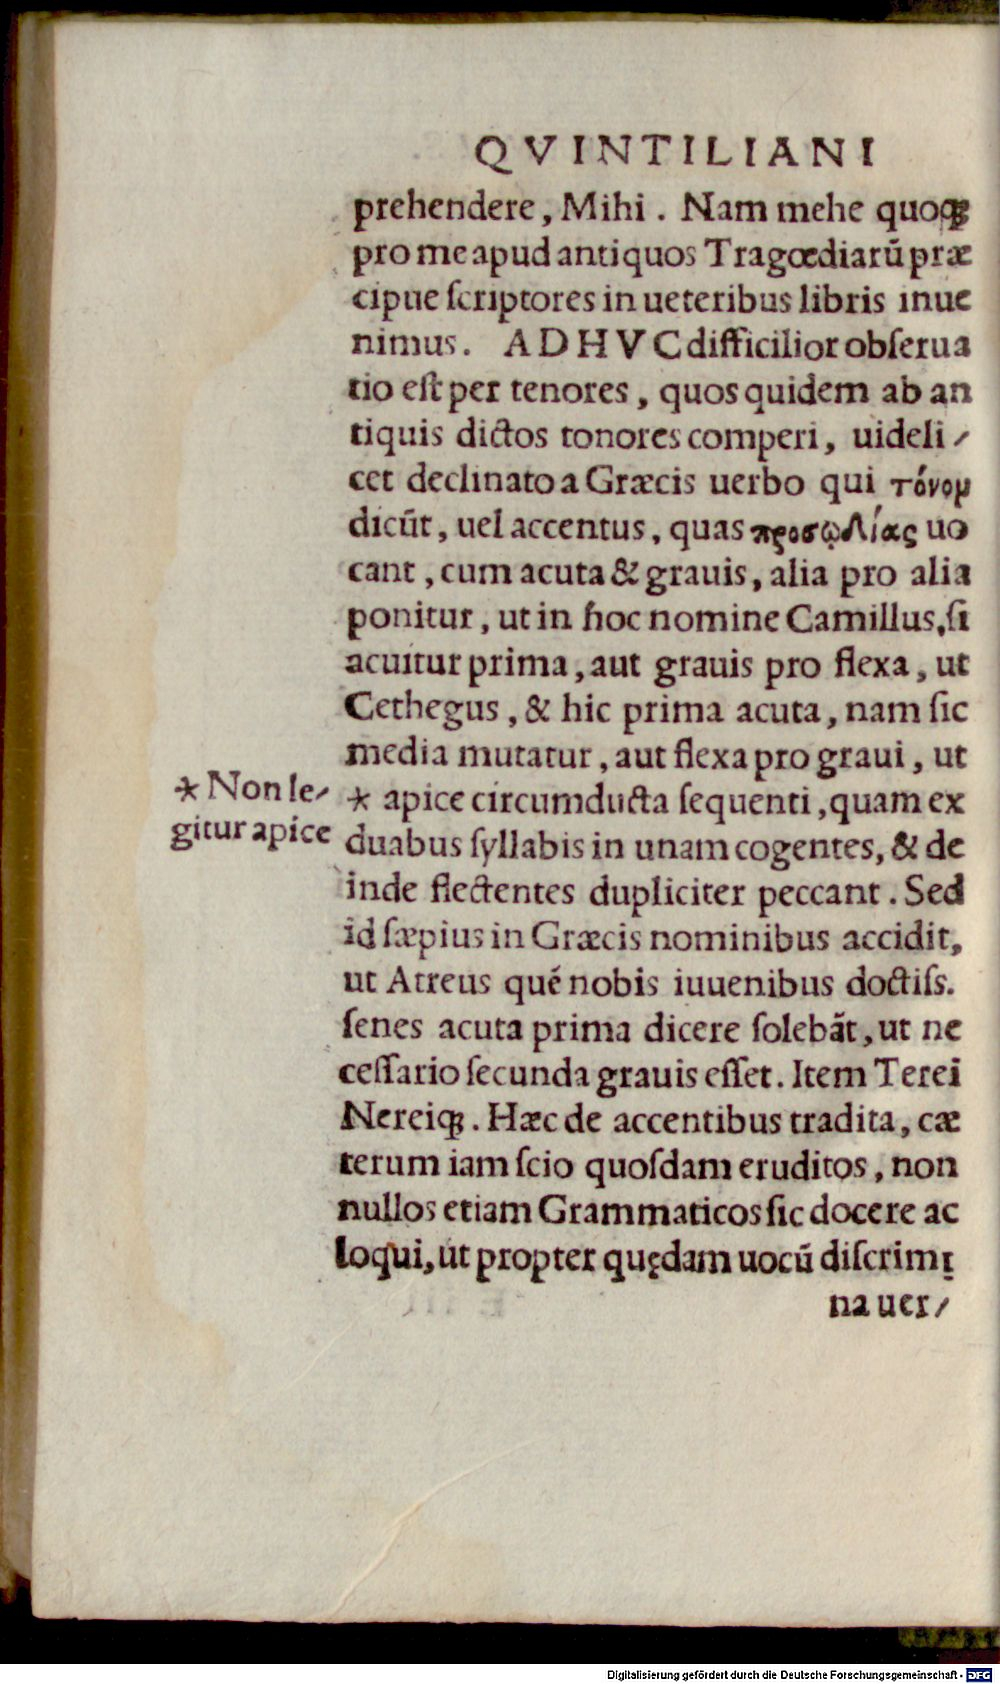 QVINTILIANI
prehendere, Mihi. Nam mehe quoqꝫ
pro me apud antiquos Tragœdiarū præ
cipue ſcriptores in ueteribus libris inue
nimus. ADHVC difficilior obſerua
tio eſt per tenores, quos quidem ab an
tiquis dictos tonores comperi, uideli⸗
cet declinato a Græcis uerbo qui τόνομ
dicūt, uel accentus, quas προσῳδίας uo
cant, cum acuta & grauis, alia pro alia
ponitur, ut in hoc nomine Camillus, ſi
acuitur prima, aut grauis pro flexa, ut
Cethegus, & hic prima acuta, nam ſic
media mutatur, aut flexa pro graui, ut
* Non le⸗
gitur apice
* apice circumducta ſequenti, quam ex
duabus ſyllabis in unam cogentes, & de
inde flectentes dupliciter peccant. Sed
id ſæpius in Græcis nominibus accidit,
ut Atreus quē nobis iuuenibus doctiſs.
ſenes acuta prima dicere ſolebāt, ut ne
ceſſario ſecunda grauis eſſet. Item Terei
Nereiqꝫ. Hæc de accentibus tradita, cæ
terum iam ſcio quoſdam eruditos, non
nullos etiam Grammaticos ſic docere ac
loqui, ut propter quędam uocū diſcrimi
na uer⸗
Digitalisierung gefördert durch die Deutsche Forschungsgemeinschaft - DFG